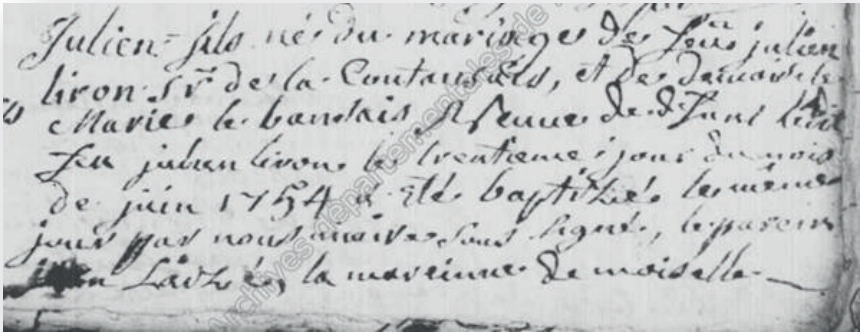 Julien fils né du mariage de feu julien
liron Sr de la Coutansais, et de demoiselle
Marie le bandais veuve de defunt ledit
feu julien liron le trentieme jour du mois
de juin 1754 a eté baptizé le même
jour par nous maire sous signé, le parein
la mareinne demoiselle
Archives départementales de